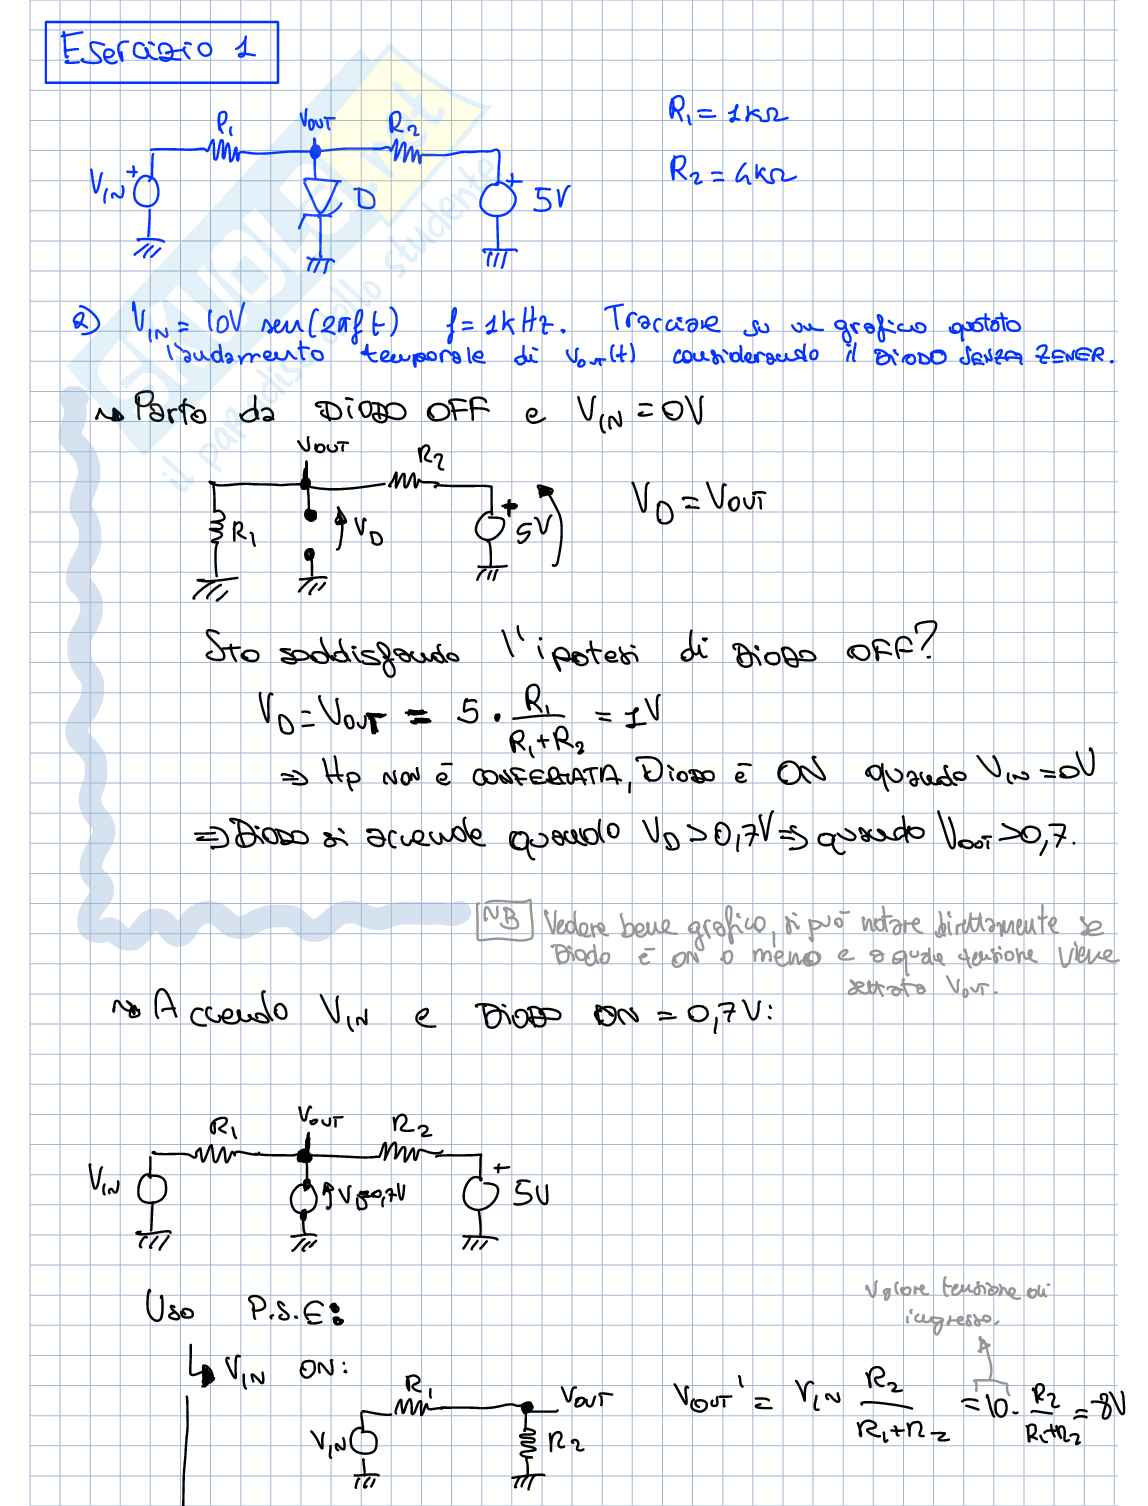 Esercizio 1
R₁ = 1kΩ
R₂ = 4kΩ
R₁ VOUT R₂
VIN + D + 5V
a) VIN = 10V sen(2πft) f = 1kHz. Tracciare su un grafico quotato
l'andamento temporale di vOUT(t) considerando il DIODO SENZA ZENER.
↝ Parto da DIODO OFF e VIN = 0V
VOUT R₂
R₁ VD + 5V VD = VOUT
Sto soddisfando l'ipotesi di DIODO OFF?
VD = VOUT = 5 · R₁/(R₁+R₂) = 1V
⇒ Hp NON È CONFERMATA, DIODO È ON quando VIN = 0V
⇒ DIODO si accende quando VD > 0,7V ⇒ quando VOUT > 0,7.
NB Vedere bene grafico, si può notare direttamente se
Diodo è ON o meno e a quale tensione viene
settato VOUT.
↝ Accendo VIN e DIODO ON = 0,7V:
R₁ VOUT R₂
VIN VD=0,7V + 5V
Uso P.S.E:
↳ VIN ON:
Valore tensione di
ingresso.
R₁ VOUT
VIN R₂
VOUT' = VIN R₂/(R₁+R₂) = 10 · R₂/(R₁+R₂) = 8V
SKUOLA.net
il paradiso dello studente